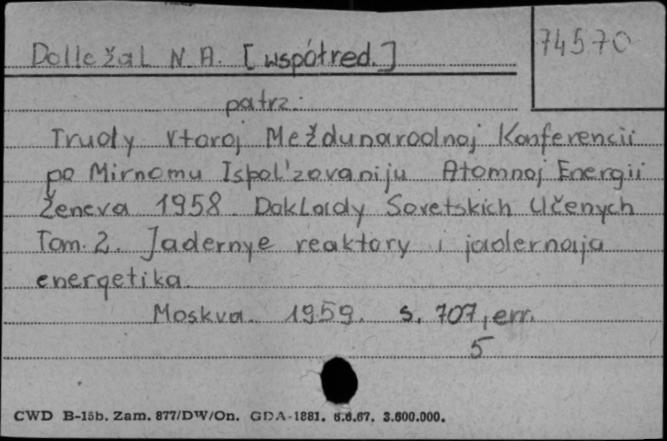 Dolležal N. A. [współred.]
74570
patrz:
Trudy Vtoroj Meždunarodnoj Konferencii
po Mirnomu Ispol'zovaniju Atomnoj Energii
Ženeva 1958. Doklady Sovetskich Učenych
Tom. 2. Jadernye reaktory i jadernaja
energetika.
Moskva. 1959. s. 707, err.
5
CWD B-15b. Zam. 877/DW/On. GDA-1881. 6.6.67. 3.600.000.